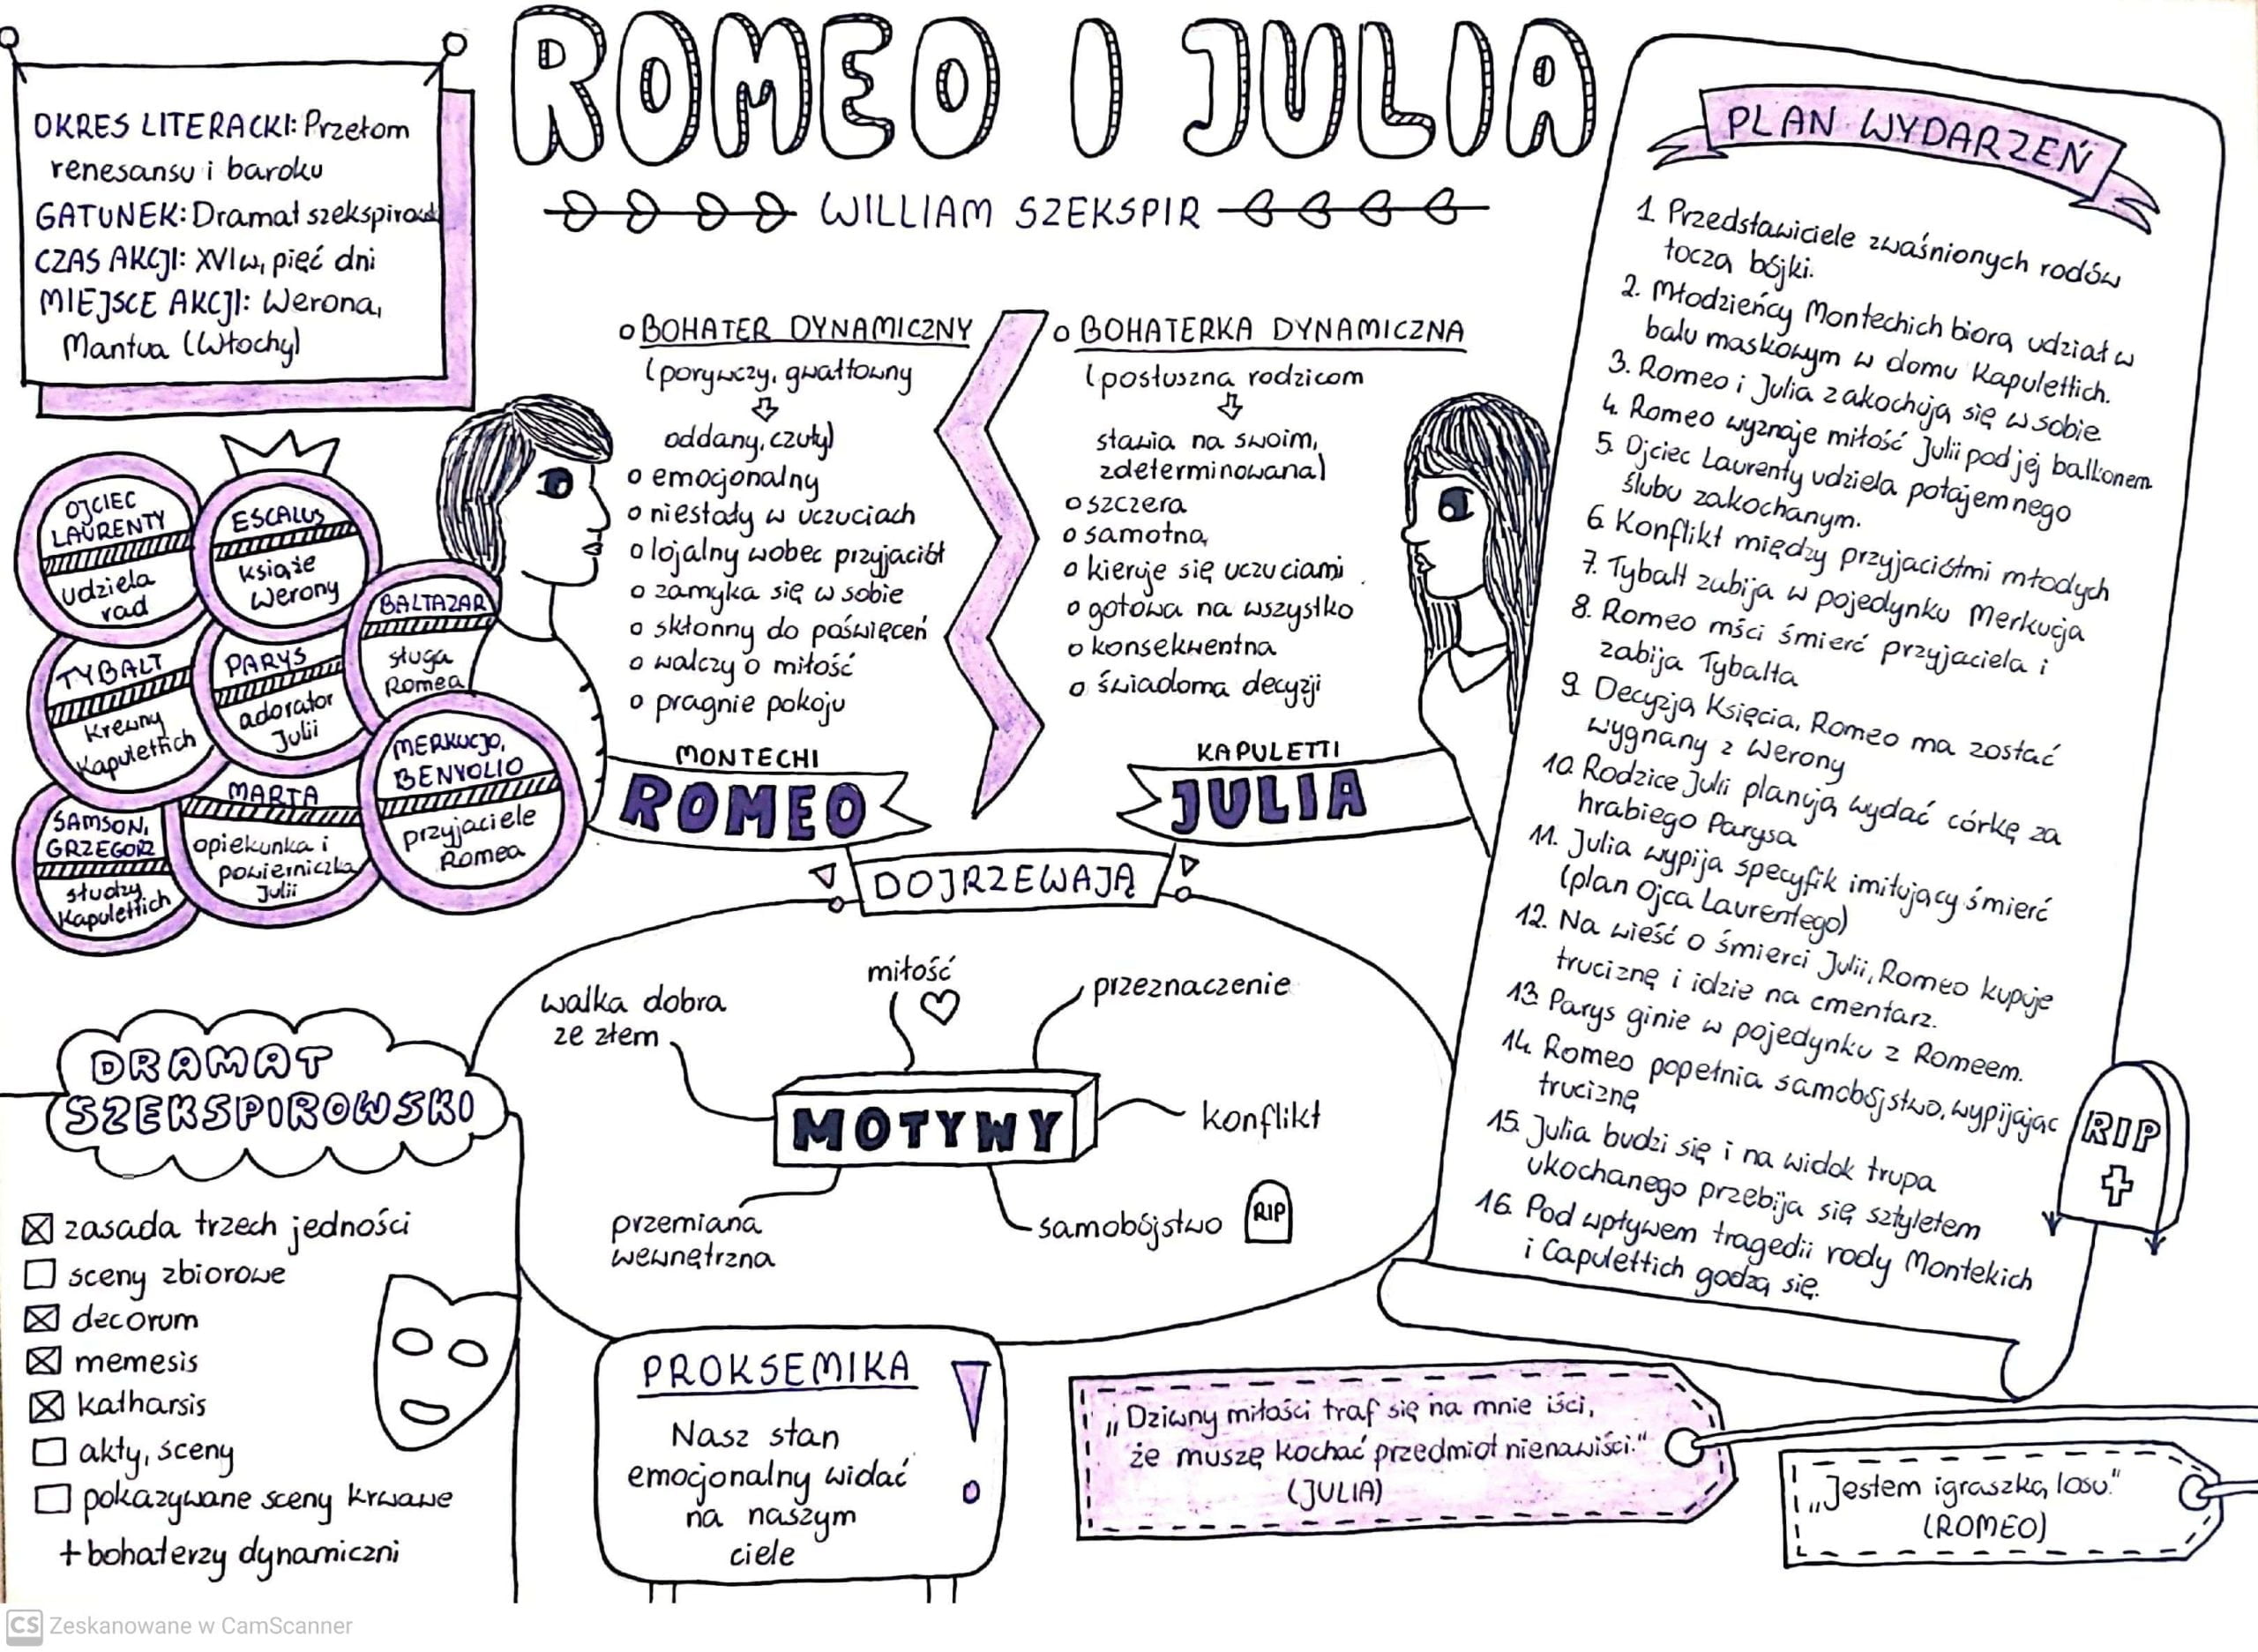 ROMEO I JULIA
WILLIAM SZEKSPIR
OKRES LITERACKI: Przełom
renesansu i baroku
GATUNEK: Dramat szekspirowski
CZAS AKCJI: XVI w, pięć dni
MIEJSCE AKCJI: Werona,
Mantua (Włochy)
OJCIEC
LAURENTY
udziela
rad
ESCALUS
książe
Werony
BALTAZAR
sługa
Romea
TYBALT
krewny
Kapulettich
PARYS
adorator
Julii
MERKUCJO,
BENVOLIO
przyjaciele
Romea
SAMSON,
GRZEGORZ
słudzy
Kapulettich
MARTA
opiekunka i
powierniczka
Julii
o BOHATER DYNAMICZNY
(porywczy, gwałtowny
oddany, czuły)
o emocjonalny
o niestały w uczuciach
o lojalny wobec przyjaciół
o zamyka się w sobie
o skłonny do poświęceń
o walczy o miłość
o pragnie pokoju
MONTECHI
ROMEO
o BOHATERKA DYNAMICZNA
(posłuszna rodzicom
stawia na swoim,
zdeterminowana)
o szczera
o samotna
o kieruje się uczuciami
o gotowa na wszystko
o konsekwentna
o świadoma decyzji
KAPULETTI
JULIA
DOJRZEWAJĄ
walka dobra
ze złem
miłość
przeznaczenie
MOTYWY
konflikt
przemiana
wewnętrzna
samobójstwo
RIP
DRAMAT
SZEKSPIROWSKI
zasada trzech jedności
sceny zbiorowe
decorum
memesis
katharsis
akty, sceny
pokazywane sceny krwawe
+ bohaterzy dynamiczni
PROKSEMIKA
Nasz stan
emocjonalny widać
na naszym
ciele
PLAN WYDARZEŃ
1. Przedstawiciele zwaśnionych rodów
toczą bójki.
2. Młodzieńcy Montechich biorą udział w
balu maskowym w domu Kapulettich.
3. Romeo i Julia zakochują się w sobie.
4. Romeo wyznaje miłość Julii pod jej balkonem
5. Ojciec Laurenty udziela potajemnego
ślubu zakochanym.
6. Konflikt między przyjaciółmi młodych
7. Tybalt zabija w pojedynku Merkucja
8. Romeo mści śmierć przyjaciela i
zabija Tybalta
9. Decyzją Księcia, Romeo ma zostać
wygnany z Werony
10. Rodzice Julii planują wydać córkę za
hrabiego Parysa
11. Julia wypija specyfik imitujący śmierć
(plan Ojca Laurentego)
12. Na wieść o śmierci Julii, Romeo kupuje
truciznę i idzie na cmentarz.
13. Parys ginie w pojedynku z Romeem.
14. Romeo popełnia samobójstwo, wypijając
truciznę
15. Julia budzi się i na widok trupa
ukochanego przebija się sztyletem
16. Pod wpływem tragedii rody Montekich
i Capulettich godzą się.
RIP
„Dziwny miłości traf się na mnie iści,
że muszę kochać przedmiot nienawiści."
(JULIA)
„Jestem igraszką losu."
(ROMEO)
CS Zeskanowane w CamScanner